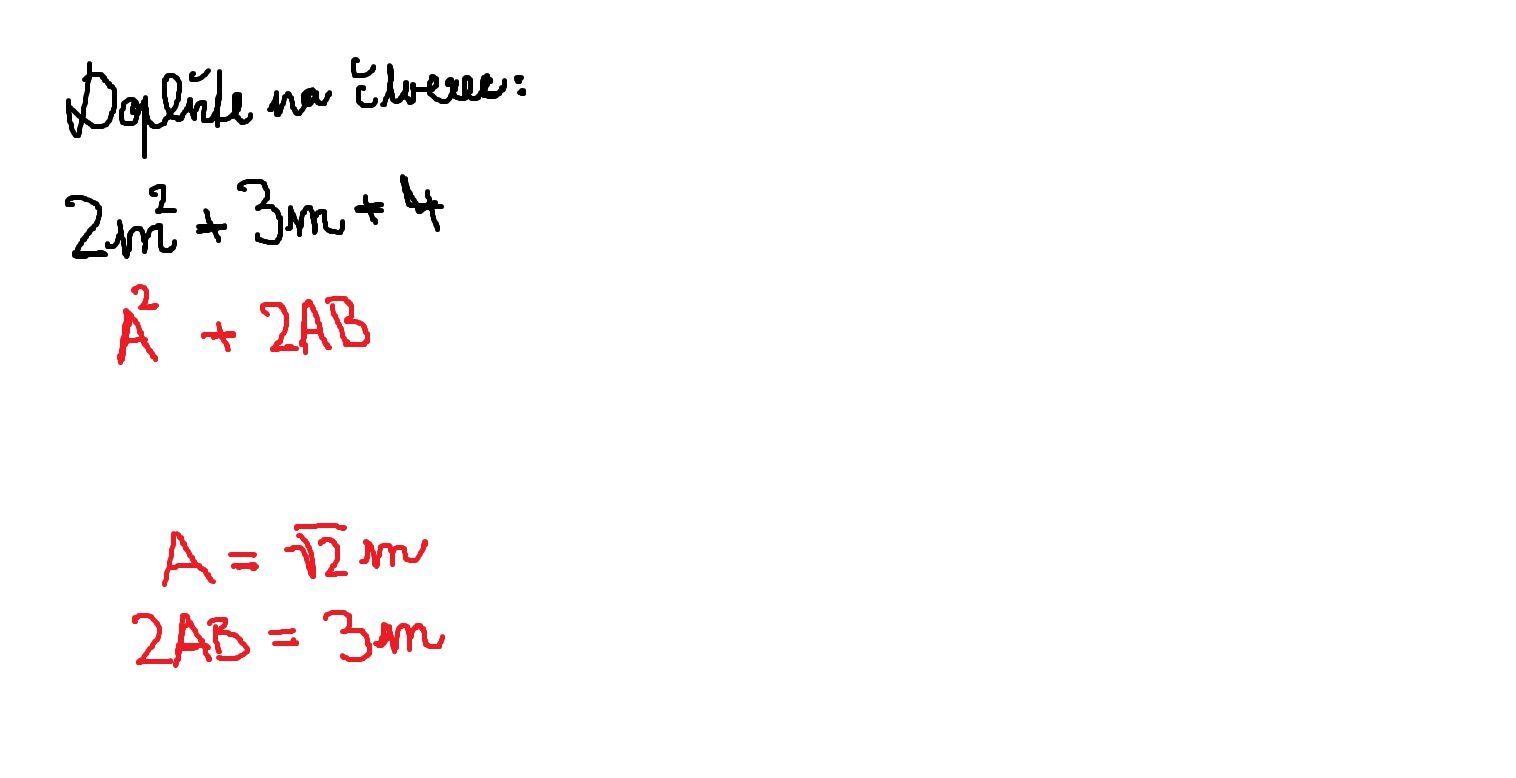 Doplňte na čtverec:
2m² + 3m + 4
A² + 2AB
A = √2 m
2AB = 3m